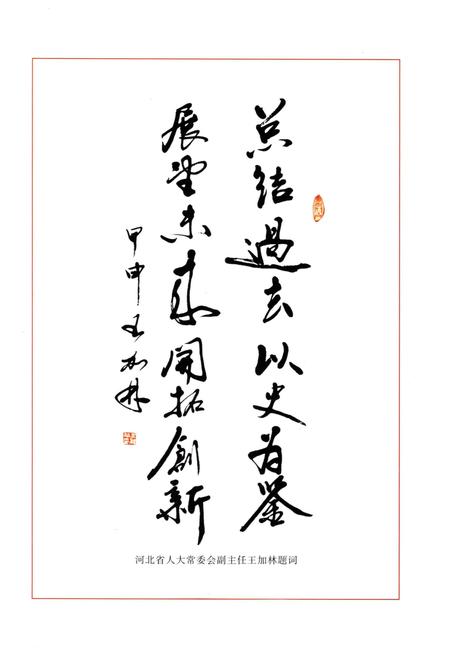 总结過去以史为鉴
展望未来開拓創新
甲申王加林
河北省人大常委会副主任王加林题词